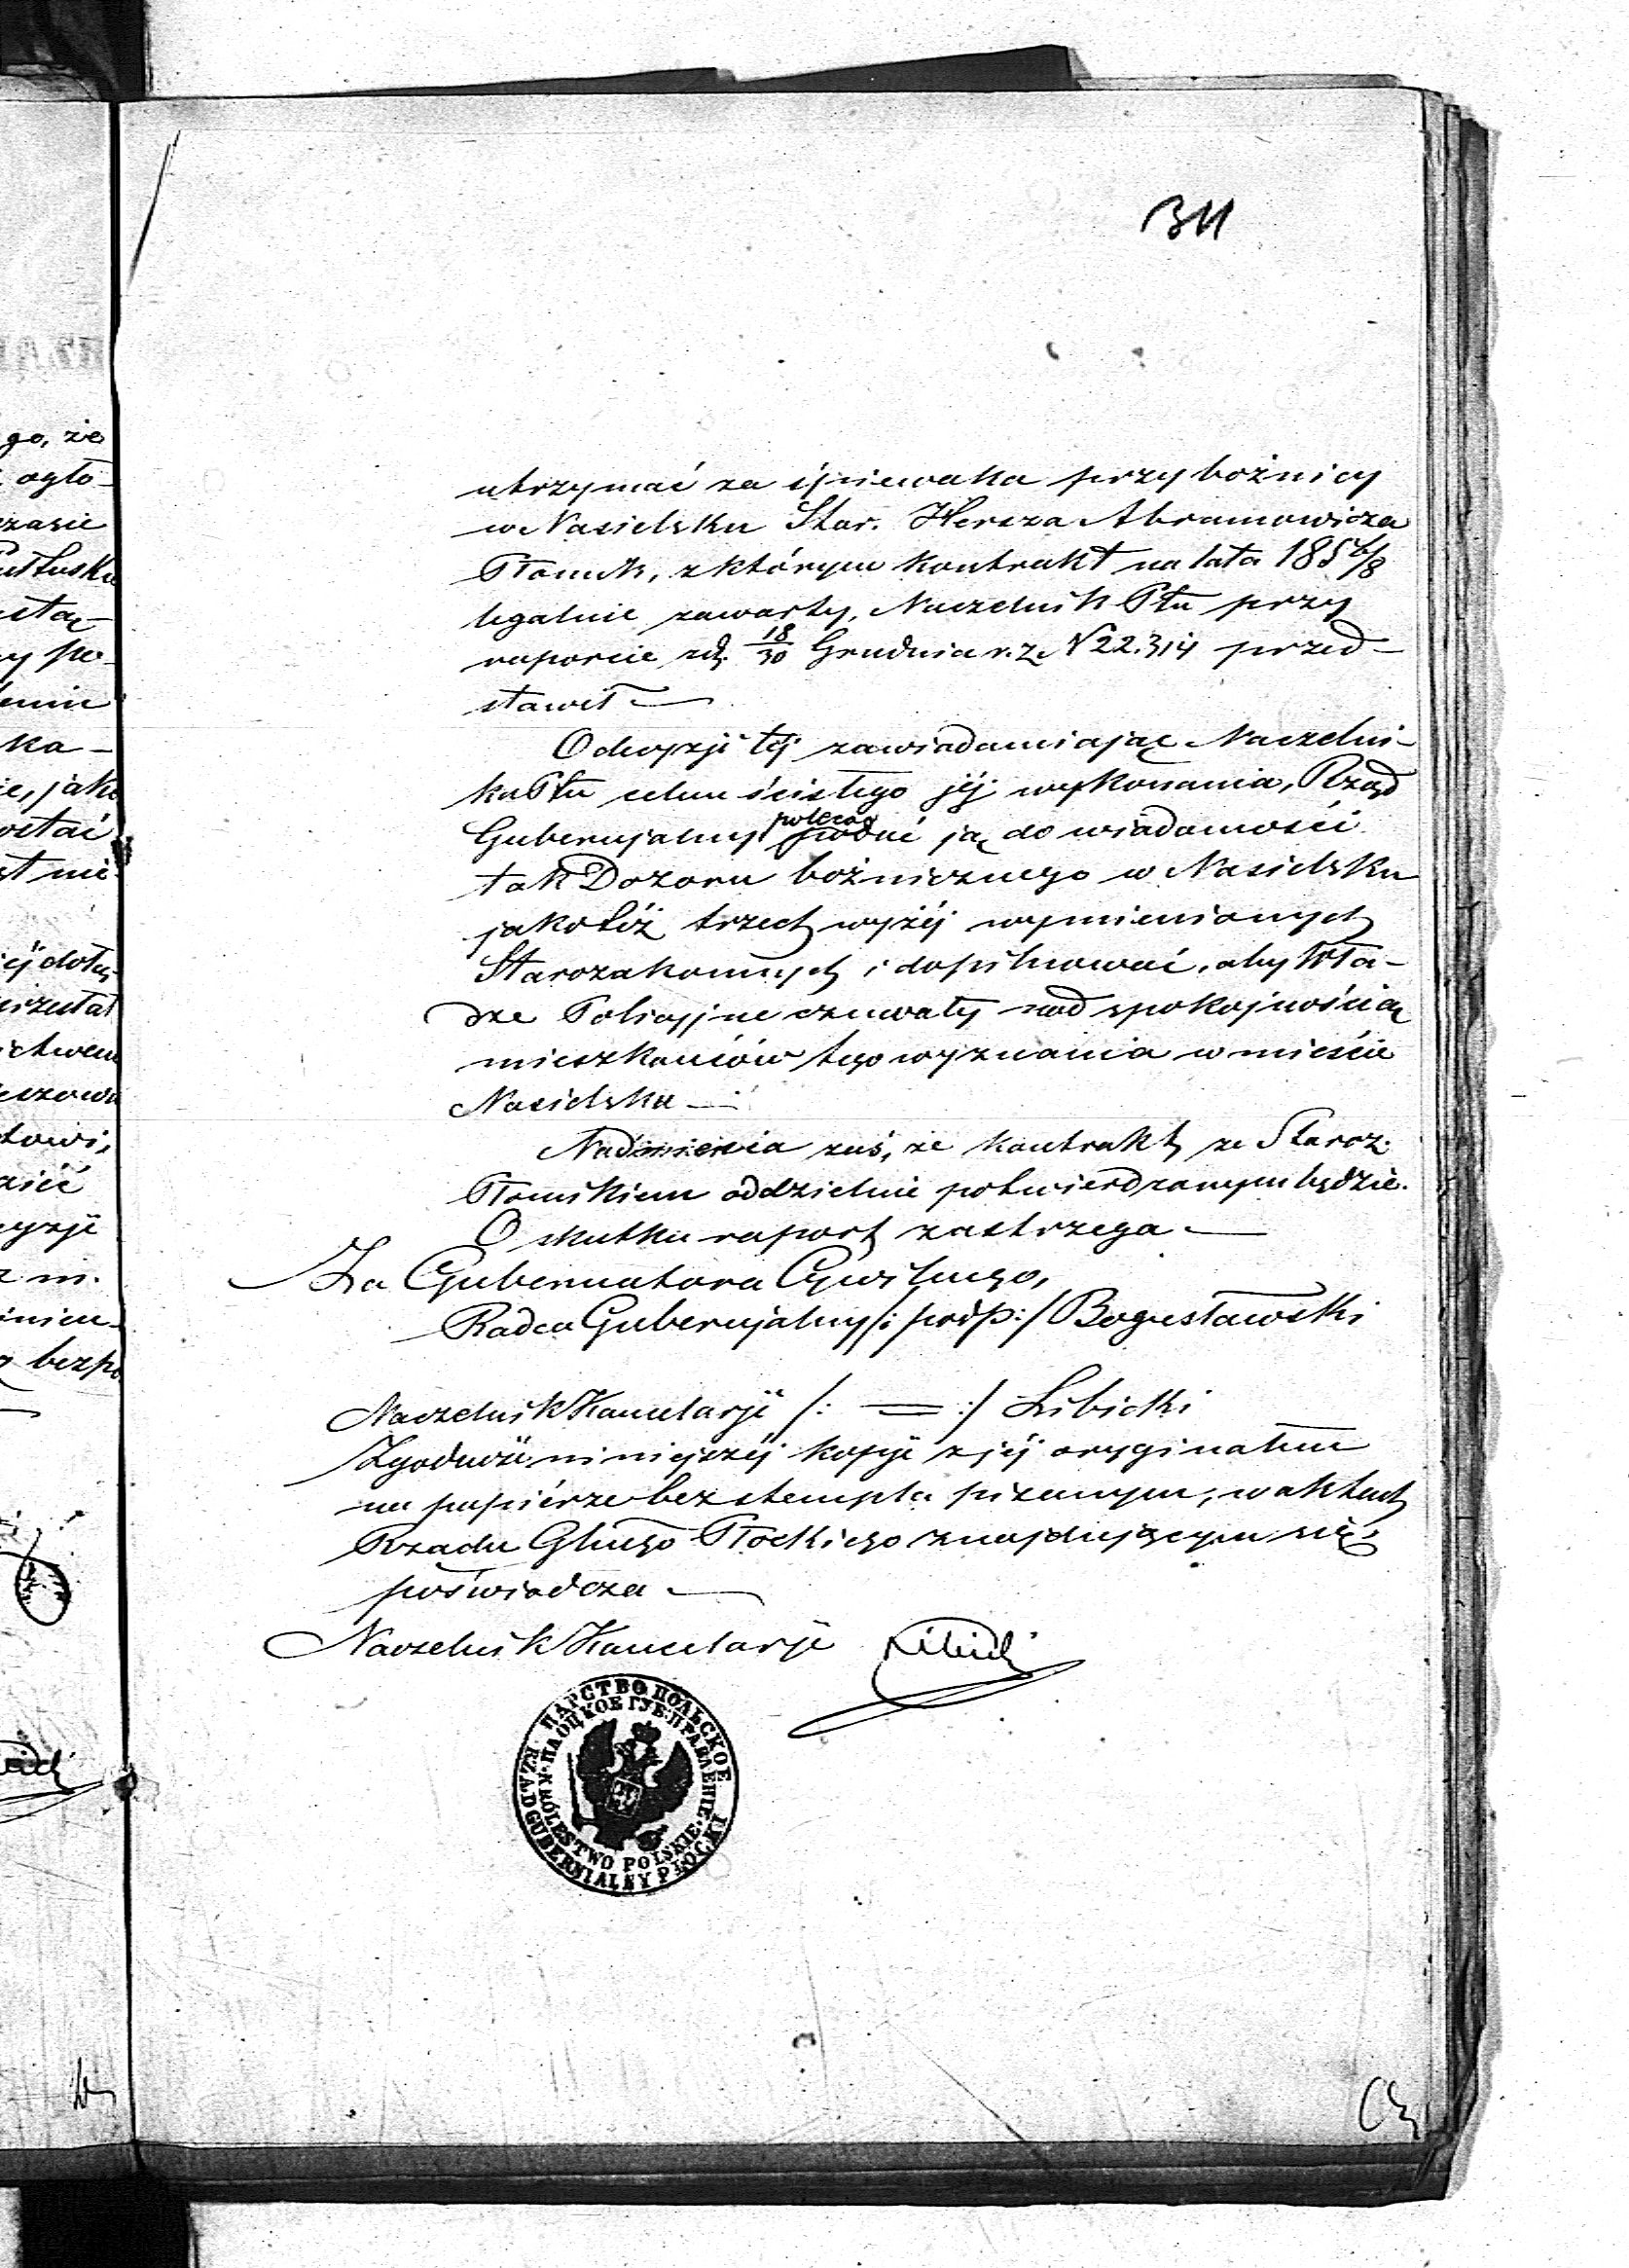 311
go, że
ogło-
czasie
Pułtusku
po-
ka-
ie, jako
ostać
st nie
utrzymać za śpiewaka przy bożnicy
w Nasielsku Star. Hersza Abramowicza
Płomik, z którym kontrakt na lata 1856/8
legalnie zawarty, Naczelnik Ptu przy
raporcie z d. 18/30 Grudnia r. z. N 22.314 przed-
stawił —
O decyzji téj zawiadamiając Naczelni-
ka Ptu celem ścisłego jéj wykonania, Rząd
Gubernjalny poleca podać ją do wiadomości
tak Dozoru bożnicznego w Nasielsku
jakotéż trzech wyżéj wymienionych
Starozakonnych i dopilnować, aby Wła-
dze Policyjne czuwały nad spokojnością
mieszkańców tego wyznania w mieście
Nasielsku —
Nadmienia zaś, że kontrakt ze Staroz.
Płomikiem oddzielnie potwierdzonym będzie.
O skutku raport zastrzega —
Za Gubernatora Cywilnego,
Radca Gubernjalny /: podp: / Bogusławski
Naczelnik Kancelarji /: = :/ Libicki
Zgodność niniejszéj kopji z jéj oryginałem
na papiérze bez stempla pisanym, w aktach
Rządu Glnego Płockiego znajdującym się,
poświadcza —
Naczelnik Kancelarji Libicki
ЦАРСТВО ПОЛЬСКОЕ
ПЛОЦКОЕ ГУБ. ПРАВЛЕНІЕ
KRÓLESTWO POLSKIE
RZĄD GUBERNIALNY PŁOCKI